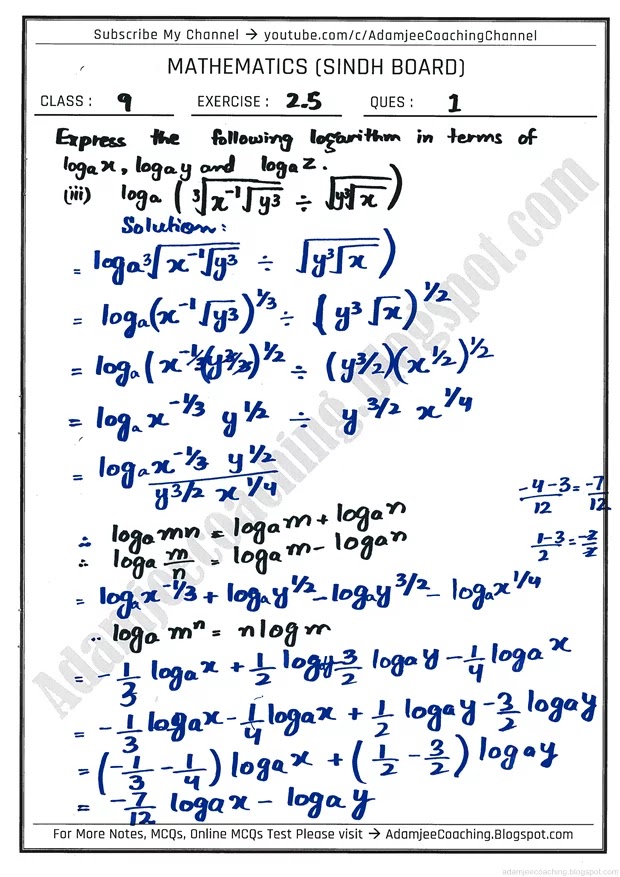 Subscribe My Channel → youtube.com/c/AdamjeeCoachingChannel
MATHEMATICS (SINDH BOARD)
CLASS : 9 EXERCISE : 2.5 QUES : 1
Express the following logarithm in terms of
logₐx, logₐy and logₐz.
(iii) logₐ (∛(x⁻¹√y³) ÷ √(y³√x))
Solution:
= logₐ∛(x⁻¹√y³) ÷ √(y³√x))
= logₐ(x⁻¹√y³)^1/3 ÷ (y³√x)^1/2
= logₐ(x^-1/3)(y^3/3)^1/2 ÷ (y^3/2)(x^1/2)^1/2
= logₐx^-1/3 y^1/2 ÷ y^3/2 x^1/4
= logₐx^-1/3 y^1/2 / y^3/2 x^1/4
-4-3/12 = -7/12
∴ logₐmn = logₐm + logₐn
1-3/2 = -2/2
∴ logₐ m/n = logₐm - logₐn
= logₐx^-1/3 + logₐy^1/2 - logₐy^3/2 - logₐx^1/4
∵ logₐ mⁿ = n log m
= -1/3 logₐx + 1/2 logy 3/2 logₐy - 1/4 logₐx
= -1/3 logₐx - 1/4 logₐx + 1/2 logₐy - 3/2 logₐy
= (-1/3 - 1/4) logₐx + (1/2 - 3/2) logₐy
= -7/12 logₐx - logₐy
For More Notes, MCQs, Online MCQs Test Please visit → AdamjeeCoaching.Blogspot.com
Adamjeecoaching.blogspot.com
adamjeecoaching.blogspot.com